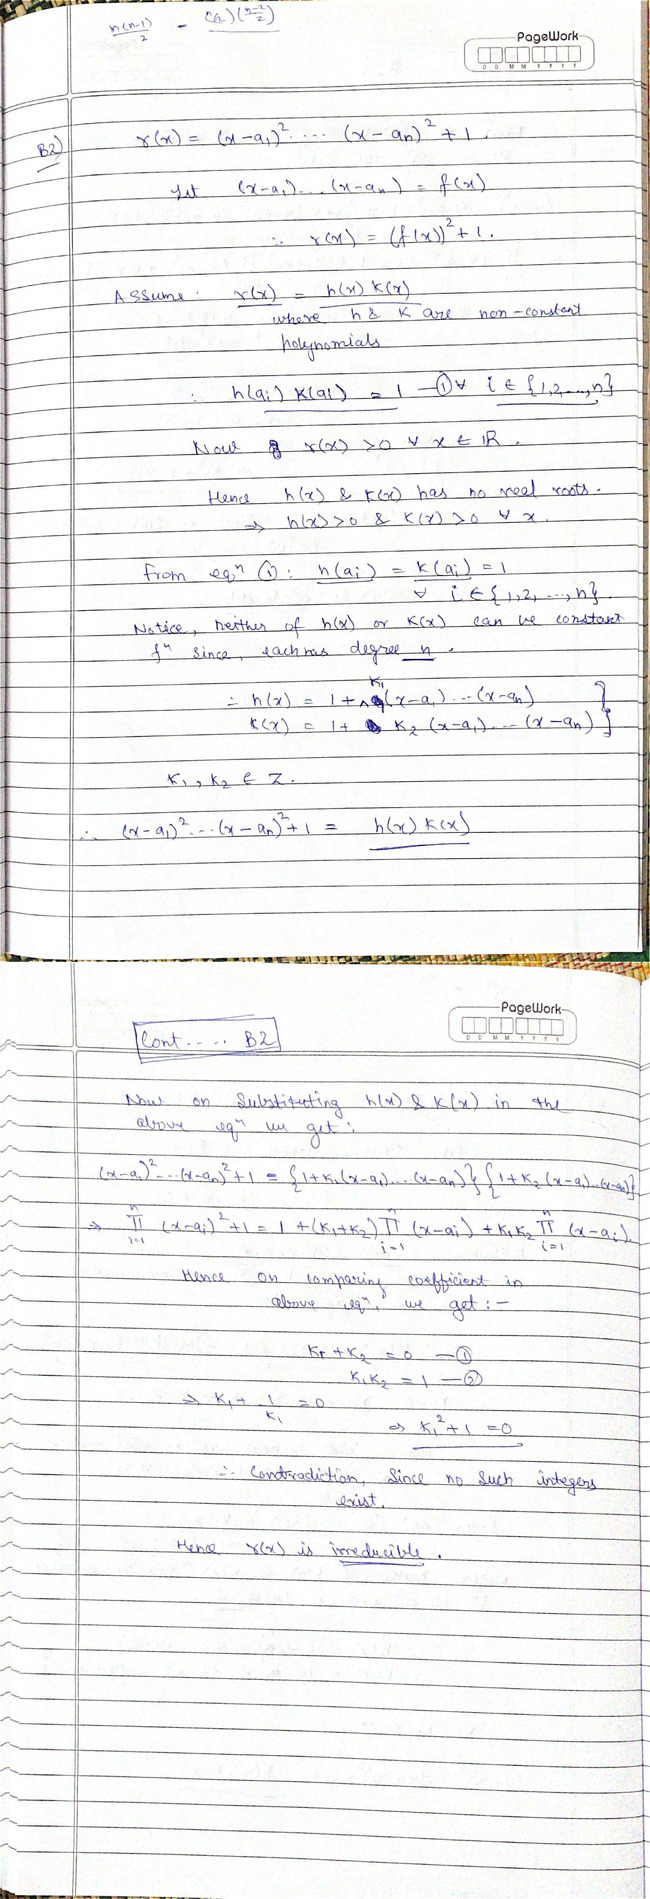 n(n-1)/2 - (2)(n-2/2)
PageWork
D D M M Y Y Y Y
B2)
r(x) = (x-a₁)² .... (x-aₙ)² + 1.
Let (x-a₁)...(x-aₙ) = f(x)
∴ r(x) = (f(x))² + 1.
Assume: r(x) = h(x) k(x)
where h & k are non-constant
polynomials
∴ h(aᵢ) k(aᵢ) = 1 —① ∀ i ∈ {1,2,...,n}
Now r(x) > 0 ∀ x ∈ ℝ.
Hence h(x) & k(x) has no real roots.
⇒ h(x) > 0 & k(x) > 0 ∀ x.
From eqⁿ ①: h(aᵢ) = k(aᵢ) = 1
∀ i ∈ {1,2, ..., n}.
Notice, neither of h(x) or k(x) can be constant
fⁿ since, each has degree n.
∴ h(x) = 1 + K₁(x-a₁)...(x-aₙ) }
k(x) = 1 + K₂ (x-a₁)...(x-aₙ) }
K₁, K₂ ∈ Z.
∴ (x-a₁)²...(x-aₙ)² + 1 = h(x) k(x)
PageWork
D D M M Y Y Y Y
Cont..... B2
Now on Substituting h(x) & k(x) in the
above eqⁿ we get:
(x-a₁)²...(x-aₙ)² + 1 = {1+K₁(x-a₁)...(x-aₙ)} {1+K₂(x-a₁)...(x-aₙ)}
⇒ ∏ᵢ₌₁ⁿ (x-aᵢ)² + 1 = 1 + (K₁+K₂) ∏ᵢ₌₁ⁿ (x-aᵢ) + K₁K₂ ∏ᵢ₌₁ⁿ (x-aᵢ).
Hence on comparing coefficient in
above eqⁿ, we get :-
K₁ + K₂ = 0 —①
K₁K₂ = 1 —②
⇒ K₁ + 1/K₁ = 0
⇒ K₁² + 1 = 0
∴ Contradiction, Since no such integers
exist.
Hence r(x) is irreducible.